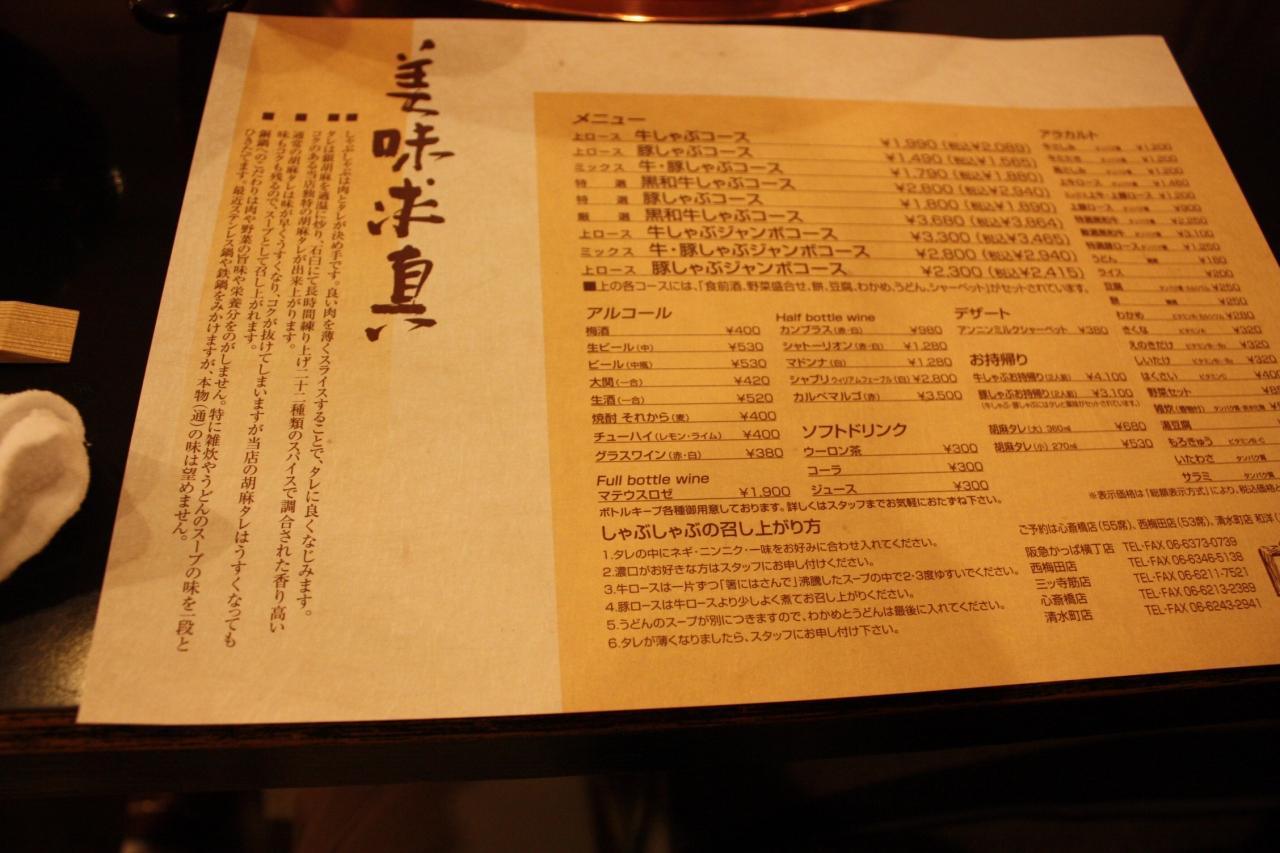 美味求真
■しゃぶしゃぶは肉とタレが決め手です。良い肉を薄くスライスすることで、タレに良くなじみます。
■タレは銀胡麻を適温に炒り、石臼にて長時間練り上げ二十二種類のスパイスで調合された香り高い
コクのある当店独特の胡麻タレが出来上がります。
■通常の胡麻タレは味が早くうすくなり、コクが抜けてしまいますが当店の胡麻タレはうすくなっても
味もコクも残るので、スープとして召し上がれます。
■銅鍋へのこだわりは肉や野菜の旨味や栄養分をのがしません。特に雑炊やうどんのスープの味を一段と
ひきたてます。最近ステンレス鍋や鉄鍋をみかけますが、本物(通)の味は望めません。
メニュー
上ロース 牛しゃぶコース ¥1,990(税込¥2,089)
上ロース 豚しゃぶコース ¥1,490(税込¥1,565)
ミックス 牛・豚しゃぶコース ¥1,790(税込¥1,880)
特選 黒和牛しゃぶコース ¥2,800(税込¥2,940)
特選 豚しゃぶコース ¥1,800(税込¥1,890)
厳選 黒和牛しゃぶコース ¥3,680(税込¥3,864)
上ロース 牛しゃぶジャンボコース ¥3,300(税込¥3,465)
ミックス 牛・豚しゃぶジャンボコース ¥2,800(税込¥2,940)
上ロース 豚しゃぶジャンボコース ¥2,300(税込¥2,415)
■上の各コースには、「食前酒、野菜盛合せ、餅、豆腐、わかめ、うどん、シャーベット」がセットされています。
アルコール
梅酒 ¥400
生ビール(中) ¥530
ビール(中瓶) ¥530
大関(一合) ¥420
生酒(一合) ¥520
焼酎 それから(麦) ¥400
チューハイ(レモン・ライム) ¥400
グラスワイン(赤・白) ¥380
Full bottle wine
マテウスロゼ ¥1,900
ボトルキープ各種御用意しております。詳しくはスタッフまでお気軽におたずね下さい。
Half bottle wine
カンブラス(赤・白) ¥980
シャトーリオン(赤・白) ¥1,280
マドンナ(白) ¥1,280
シャブリ ウィリアムフェーブル(白) ¥2,800
カルベマルゴ(赤) ¥3,500
ソフトドリンク
ウーロン茶 ¥300
コーラ ¥300
ジュース ¥300
デザート
アンニンミルクシャーベット ¥380
お持帰り
牛しゃぶお持帰り(2人前) ¥4,100
豚しゃぶお持帰り(2人前) ¥3,100
(牛しゃぶ・豚しゃぶにはタレと薬味がセットされています。)
胡麻タレ(大) 360ml ¥680
胡麻タレ(小) 270ml ¥530
アラカルト
¥1,200
¥1,200
¥1,200
上牛ロース ¥1,480
¥1,200
上豚ロース ¥900
特選黒和牛 ¥2,250
厳選黒和牛 ¥3,100
特選豚ロース ¥1,250
うどん ¥180
ライス ¥200
豆腐 ¥250
餅 ¥250
わかめ ¥280
きくな ¥320
えのきだけ ¥320
しいたけ ¥320
はくさい ビタミンC ¥400
野菜セット
雑炊(香物付)
湯豆腐
もろきゅう
いたわさ タンパク質
サラミ タンパク質
※表示価格は「総額表示方式」により、税込価格と
しゃぶしゃぶの召し上がり方
1.タレの中にネギ・ニンニク・一味をお好みに合わせ入れてください。
2.濃口がお好きな方はスタッフにお申し付けください。
3.牛ロースは一片ずつ「箸にはさんで」沸騰したスープの中で2・3度ゆすいでください。
4.豚ロースは牛ロースより少しよく煮てお召し上がりください。
5.うどんのスープが別につきますので、わかめとうどんは最後に入れてください。
6.タレが薄くなりましたら、スタッフにお申し付け下さい。
ご予約は心斎橋店(55席)、西梅田店(53席)、清水町店 和洋
阪急かっぱ横丁店 TEL・FAX 06-6373-0739
西梅田店 TEL・FAX 06-6346-5138
三ッ寺筋店 TEL・FAX 06-6211-7521
心斎橋店 TEL・FAX 06-6213-2389
清水町店 TEL・FAX 06-6243-2941